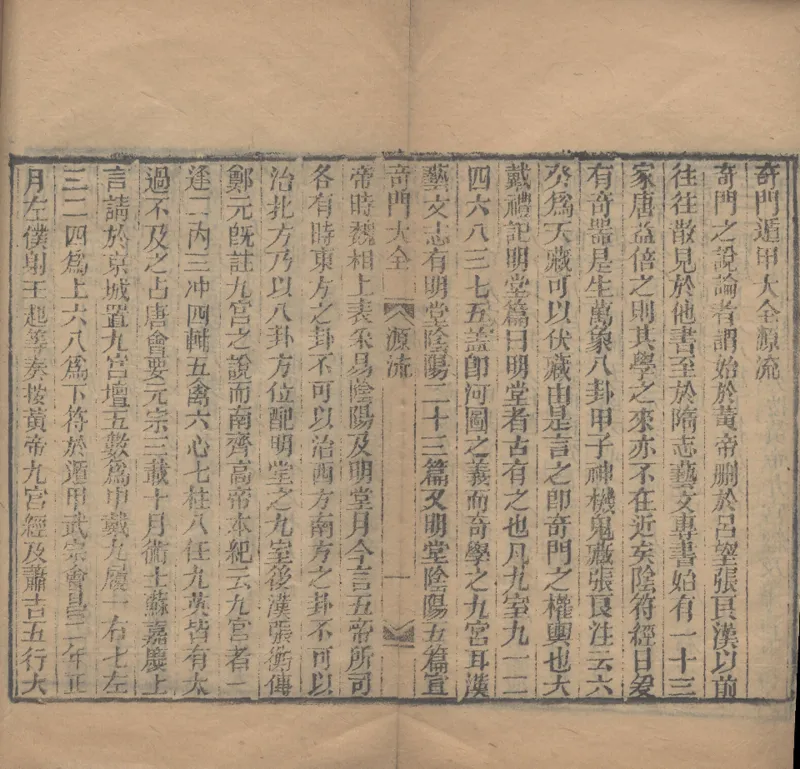 奇門遁甲大全源流
奇門之說論者謂始於黃帝刪於呂望張艮漢以前
往往散見於他書至於隋志藝文專書始有一十三
家唐益倍之則其學之來亦不在近矣陰符經曰爰
有奇噐是生萬象八卦甲子神機鬼藏張艮注云六
癸爲天藏可以伏藏由是言之卽奇門之權輿也大
戴禮記明堂篇曰明堂者古有之也凡九室九一二
四六八三七五盖卽河圖之義而奇學之九宮耳漢
藝文志有明堂陰陽二十三篇又明堂陰陽五篇宣
奇門大全 源流 一
帝時魏相上表采易陰陽及明堂月令言五帝所司
各有時東方之卦不可以治西方南方之卦不可以
治北方乃以八卦方位配明堂之九室後漢張衡傳
鄭元旣註九宮之說而南齊高帝本紀云九宮者一
逢二內三冲四輔五禽六心七柱八任九英皆有太
過不及之占唐會要元宗三載十月術士蘇嘉慶上
言請於京城置九宮壇五數爲中戴九履一右七左
三二四爲上六八爲下符於遁甲武宗會昌二年正
月左僕射王起等奏按黃帝九宮經及蕭吉五行大